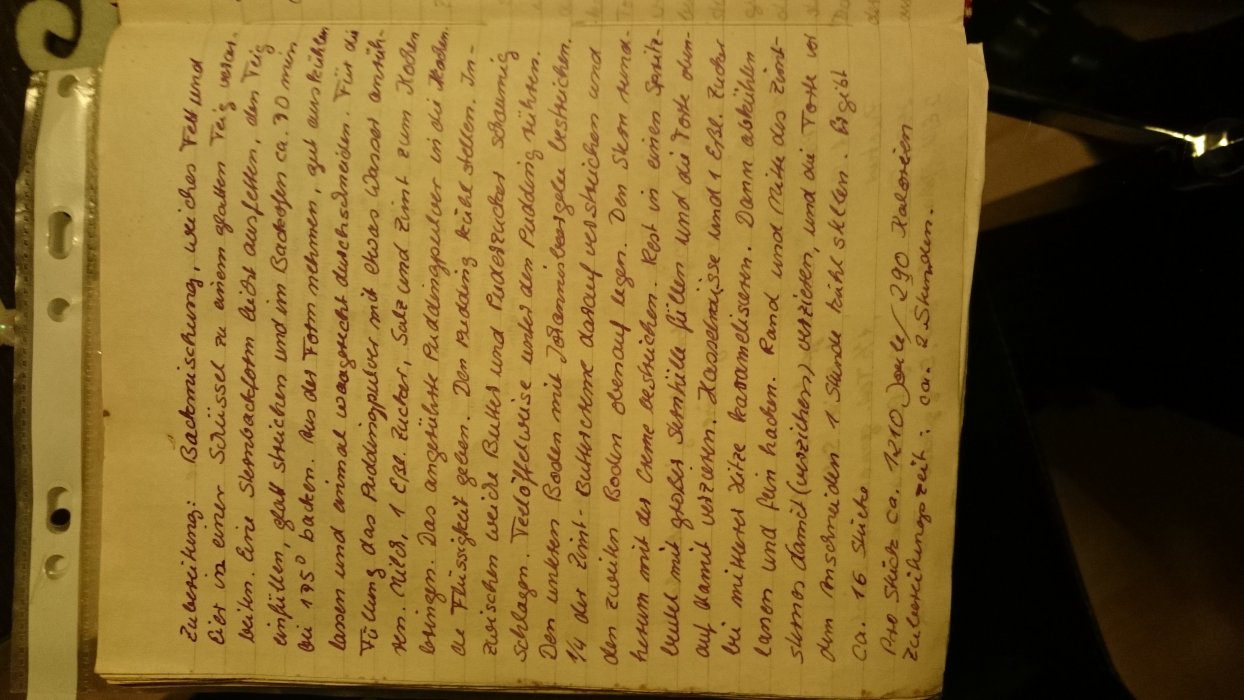 Zubereitung: Backmischung, weiches Fett und
Eier in einer Schüssel zu einem glatten Teig verar-
beiten. Eine Sternbackform leicht ausfetten, den Teig
einfüllen, glatt streichen und im Backofen ca. 30 min
bei 175° backen. Aus der Form nehmen, gut auskühlen
lassen und einmal waagerecht durchschneiden. Für die
Füllung das Puddingpulver mit etwas Wasser anrüh-
ren. Milch, 1 Eßl. Zucker, Salz und Zimt zum Kochen
bringen. Das angerührte Puddingpulver in die kochen
de Flüssigkeit geben. Den Pudding kühl stellen. In-
zwischen weiche Butter und Puderzucker schaumig
schlagen. Teelöffelweise unter den Pudding rühren.
Den unteren Boden mit Johannisbeergelee bestreichen.
1/4 der Zimt-Buttercreme darauf verstreichen und
den zweiten Boden obenauf legen. Den Stern rund-
herum mit der Creme bestreichen. Rest in einen Spritz-
beutel mit großer Sterntülle füllen und die Torte dam-
auf damit verzieren. Haselnüsse und 1 Eßl. Zucker
bei mittlerer Hitze karamelisieren. Dann abkühlen
lassen und fein hacken. Rand und Mitte des Zimt-
sternes damit (verzichen) verzieren, und die Torte vor
dem Anschneiden 1 Stunde kühl stellen. Ergibt
ca. 16 Stücke
Pro Stück ca. 1210 Joule/290 Kalorien
Zubereitungszeit: ca. 2 Stunden.